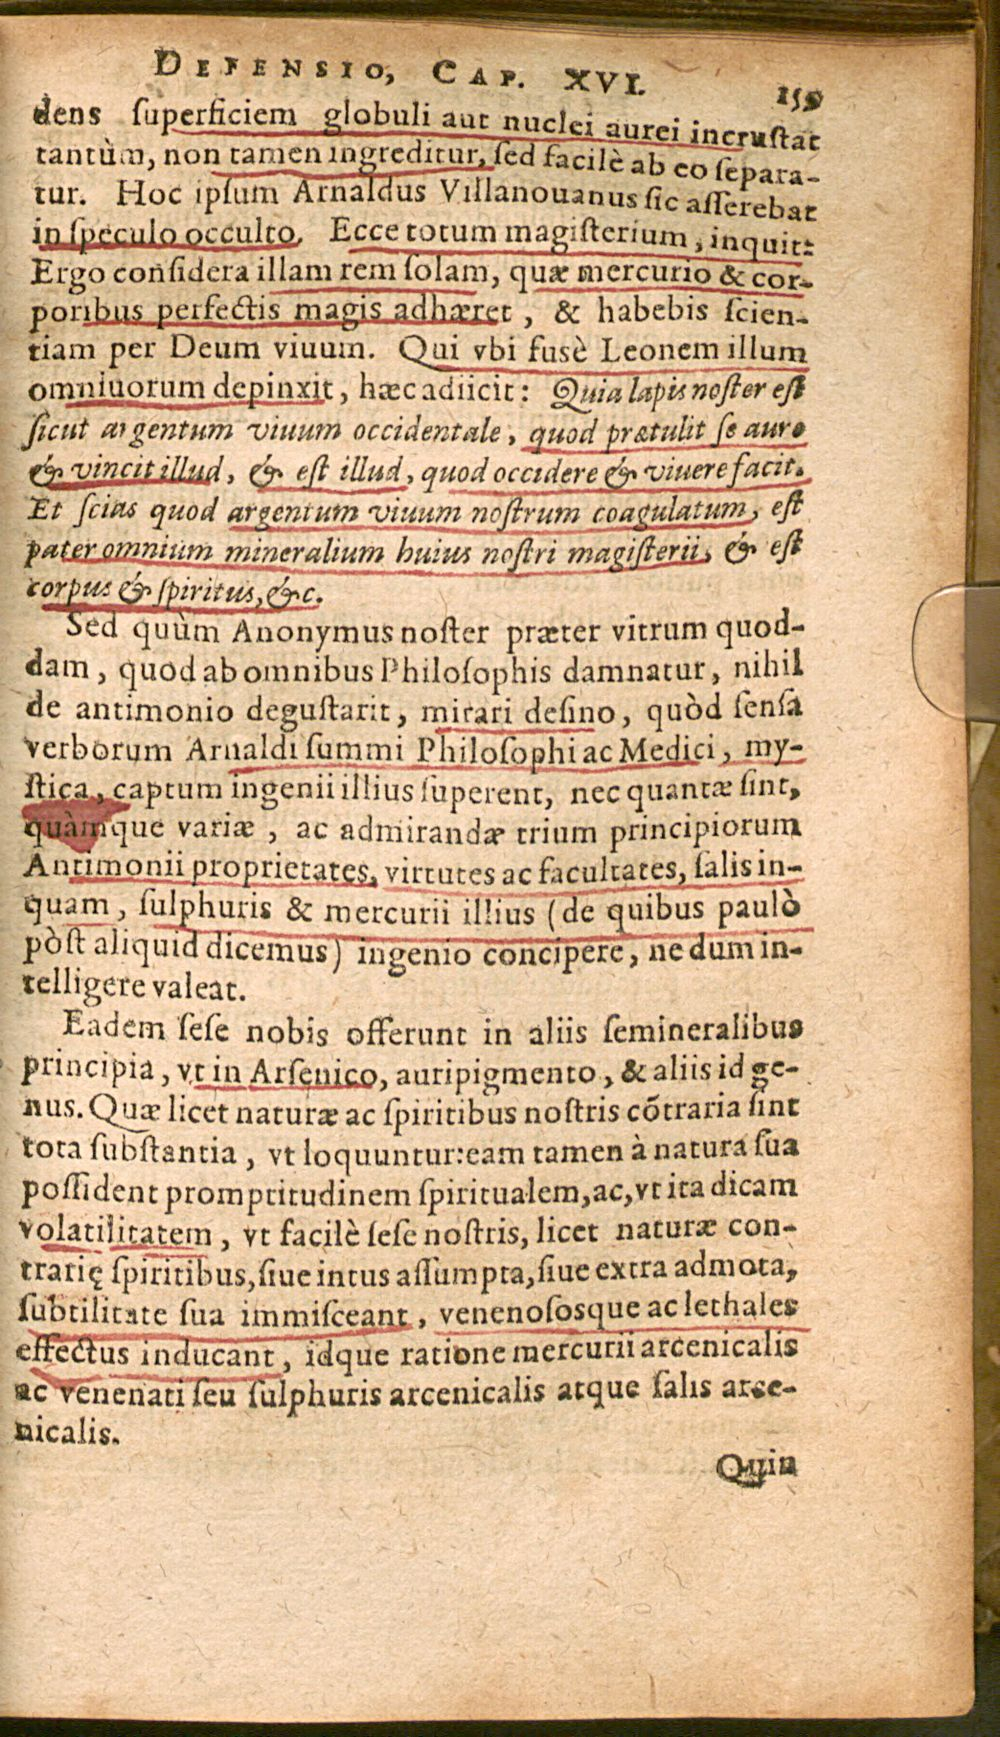 DEFENSIO, CAP. XVI. 159
dens superficiem globuli aut nuclei aurei incrustat
tantùm, non tamen ingreditur, sed facilè ab eo separa-
tur. Hoc ipsum Arnaldus Villanouanus sic asserebat
in speculo occulto. Ecce totum magisterium, inquit:
Ergo considera illam rem solam, quæ mercurio & cor-
poribus perfectis magis adhæret, & habebis scien-
tiam per Deum viuum. Qui vbi fusè Leonem illum
omniuorum depinxit, hæc adiicit: Quia lapis noster est
sicut argentum viuum occidentale, quod prætulit se auro
& vincit illud, & est illud, quod occidere & viuere facit.
Et scias quod argentum viuum nostrum coagulatum, est
pater omnium mineralium huius nostri magisterii, & est
corpus & spiritus, &c.
Sed quùm Anonymus noster præter vitrum quod-
dam, quod ab omnibus Philosophis damnatur, nihil
de antimonio degustarit, mirari desino, quòd sensa
verborum Arnaldi summi Philosophi ac Medici, my-
stica, captum ingenii illius superent, nec quantæ sint,
quàmque variæ, ac admirandæ trium principiorum
Antimonii proprietates, virtutes ac facultates, salis in-
quam, sulphuris & mercurii illius (de quibus paulò
pòst aliquid dicemus) ingenio concipere, ne dum in-
telligere valeat.
Eadem sese nobis offerunt in aliis semineralibus
principia, vt in Arsenico, auripigmento, & aliis id ge-
nus. Quæ licet naturæ ac spiritibus nostris cõtraria sint
tota substantia, vt loquuntur: eam tamen à natura sua
possident promptitudinem spiritualem, ac, vt ita dicam
volatilitatem, vt facilè sese nostris, licet naturæ con-
trarię spiritibus, siue intus assumpta, siue extra admota,
subtilitate sua immisceant, venenososque ac lethales
effectus inducant, idque ratione mercurii arcenicalis
ac venenati seu sulphuris arcenicalis atque salis arce-
nicalis.
Quin